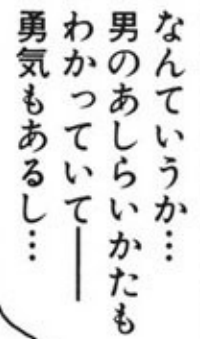 なんていうか…
男のあしらいかたも
わかっていて――
勇気もあるし…